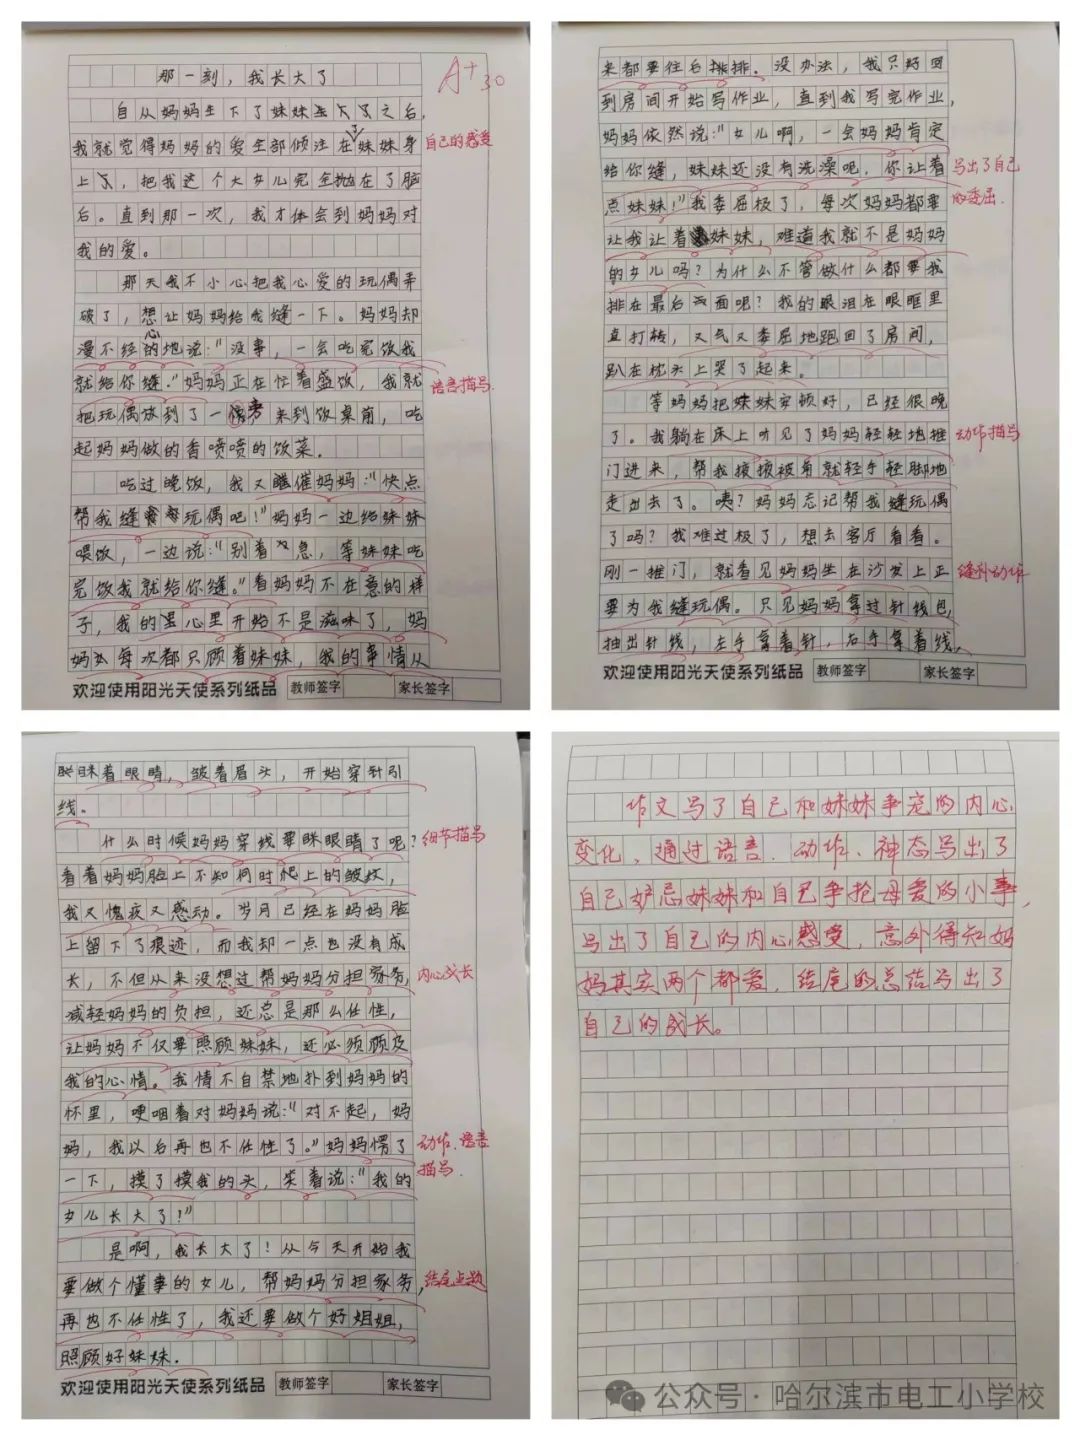 那一刻，我长大了
A+30
自从妈妈生下了妹妹之后，
我就觉得妈妈的爱全部倾注在了妹妹身
自己的感受
上，把我这个大女儿完全抛在了脑
后。直到那一次，我才体会到妈妈对
我的爱。
那天我不小心把我心爱的玩偶弄
破了，想让妈妈给我缝一下。妈妈却
漫不经心的地说："没事，一会吃完饭我
就给你缝。"妈妈正在忙着盛饭，我就
语言描写
把玩偶放到了一旁来到饭桌前，吃
起妈妈做的香喷喷的饭菜。
吃过晚饭，我又催妈妈："快点
帮我缝玩偶吧！"妈妈一边给妹妹
喂饭，一边说："别着急，等妹妹吃
完饭我就给你缝。"看妈妈不在意的样
子，我的心里开始不是滋味了，妈
妈么每次都只顾着妹妹，我的事情从
欢迎使用阳光天使系列纸品 教师签字 家长签字
来都要往后排排。没办法，我只好回
到房间开始写作业，直到我写完作业，
妈妈依然说："女儿啊，一会妈妈肯定
给你缝，妹妹还没有洗澡呢，你让着
写出了自己
点妹妹！"我委屈极了，每次妈妈都要
的委屈.
让我让着妹妹，难道我就不是妈妈
的女儿吗？为什么不管做什么都要我
排在最后面呢？我的眼泪在眼眶里
直打转，又气又委屈地跑回了房间，
趴在枕头上哭了起来。
等妈妈把妹妹安顿好，已经很晚
了。我躺在床上听见了妈妈轻轻地推
动作描写
门进来，帮我掖掖被角就轻手轻脚地
走出去了。咦？妈妈忘记帮我缝玩偶
了吗？我难过极了，想去客厅看看。
刚一推门，就看见妈妈坐在沙发上正
缝补动作
要为我缝玩偶。只见妈妈拿过针线包，
抽出针线，左手拿着针，右手拿着线，
欢迎使用阳光天使系列纸品 教师签字 家长签字
眯着眼睛，皱着眉头，开始穿针引
线。
什么时候妈妈穿线要眯眼睛了呢？
细节描写
看着妈妈脸上不知何时爬上的皱纹，
我又愧疚又感动。岁月已经在妈妈脸
上留下了痕迹，而我却一点也没有成
长，不但从来没想过帮妈妈分担家务，
内心成长
减轻妈妈的负担，还总是那么任性，
让妈妈不仅要照顾妹妹，还必须顾及
我的心情。我情不自禁地扑到妈妈的
怀里，哽咽着对妈妈说："对不起，妈
妈，我以后再也不任性了。"妈妈愣了
动作、语言
描写.
一下，摸了摸我的头，笑着说："我的
女儿长大了！"
是啊，我长大了！从今天开始我
要做个懂事的女儿，帮妈妈分担家务，
结尾点题
再也不任性了，我还要做个好姐姐，
照顾好妹妹.
欢迎使用阳光天使系列纸品 教师签字 家长签字
作文写了自己和妹妹争宠的内心
变化，通过语言、动作、神态写出了
自己妒忌妹妹和自己争抢母爱的小事，
写出了自己的内心感受，意外得知妈
妈其实两个都爱，结尾的总结写出了
自己的成长。
公众号·哈尔滨市电工小学校